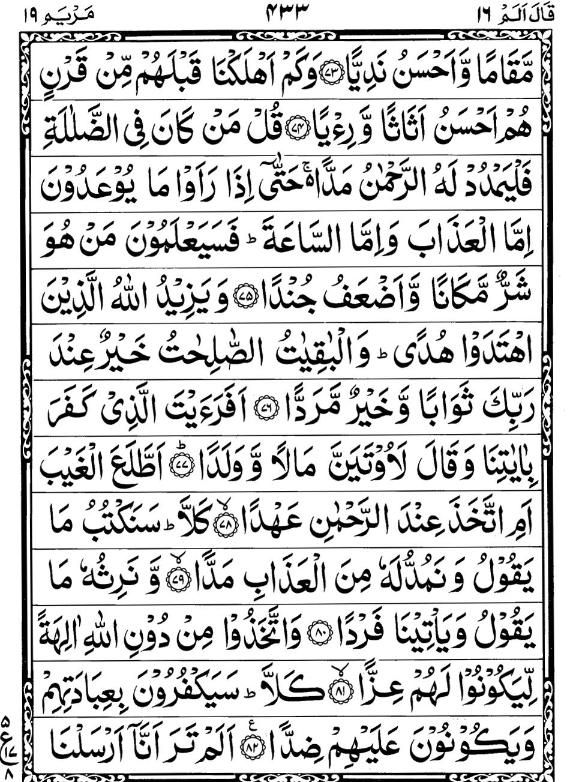 قَالَ اَلَمْ ١٦ ۴٣٣ مَرْيَم ١٩
مَّقَامًا وَّاَحْسَنُ نَدِيًّا ﴿٧٣﴾ وَكَمْ اَهْلَكْنَا قَبْلَهُمْ مِّنْ قَرْنٍ
هُمْ اَحْسَنُ اَثَاثًا وَّ رِءْيًا ﴿٧۴﴾ قُلْ مَنْ كَانَ فِى الضَّلٰلَةِ
فَلْيَمْدُدْ لَهُ الرَّحْمٰنُ مَدًّا ۚ حَتّٰٓى اِذَا رَاَوْا مَا يُوْعَدُوْنَ
اِمَّا الْعَذَابَ وَاِمَّا السَّاعَةَ ؕ فَسَيَعْلَمُوْنَ مَنْ هُوَ
شَرٌّ مَّكَانًا وَّاَضْعَفُ جُنْدًا ﴿٧۵﴾ وَ يَزِيْدُ اللّٰهُ الَّذِيْنَ
اهْتَدَوْا هُدًى ؕ وَالْبٰقِيٰتُ الصّٰلِحٰتُ خَيْرٌ عِنْدَ
رَبِّكَ ثَوَابًا وَّ خَيْرٌ مَّرَدًّا ﴿٧۶﴾ اَفَرَءَيْتَ الَّذِىْ كَفَرَ
بِاٰيٰتِنَا وَقَالَ لَاُوْتَيَنَّ مَالًا وَّ وَلَدًا ﴿٧٧﴾ؕ اَطَّلَعَ الْغَيْبَ
اَمِ اتَّخَذَ عِنْدَ الرَّحْمٰنِ عَهْدًا ﴿٧٨﴾ۙ كَلَّا ؕ سَنَكْتُبُ مَا
يَقُوْلُ وَ نَمُدُّ لَهٗ مِنَ الْعَذَابِ مَدًّا ﴿٧٩﴾ۙ وَّ نَرِثُهٗ مَا
يَقُوْلُ وَيَاْتِيْنَا فَرْدًا ﴿٨٠﴾ وَاتَّخَذُوْا مِنْ دُوْنِ اللّٰهِ اٰلِهَةً
لِّيَكُوْنُوْا لَهُمْ عِزًّا ﴿٨١﴾ۙ كَلَّا ؕ سَيَكْفُرُوْنَ بِعِبَادَتِهِمْ
وَيَكُوْنُوْنَ عَلَيْهِمْ ضِدًّا ﴿٨٢﴾ۧ اَلَمْ تَرَ اَنَّآ اَرْسَلْنَا
۵
ع
١٧
٨